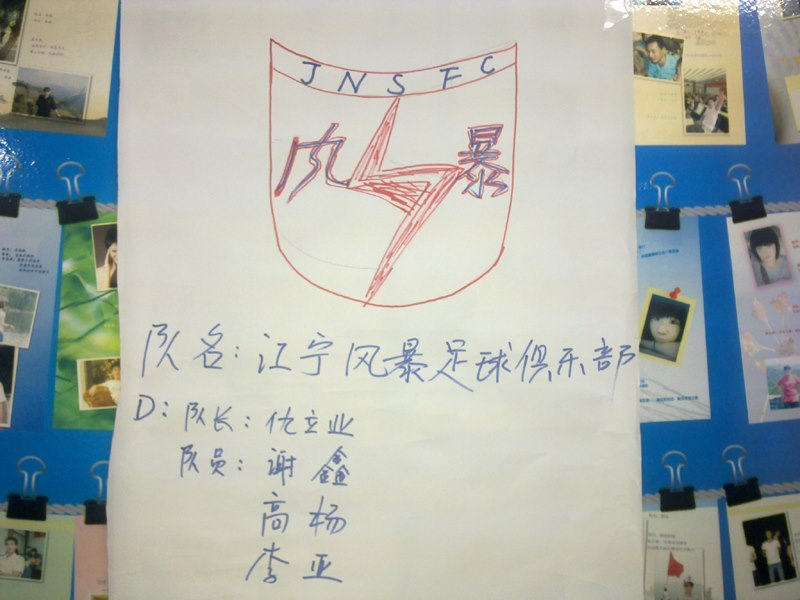 JNSFC
风暴
队名：江宁风暴足球俱乐部
D：队长：仇立业
队员：谢鑫
高杨
李亚